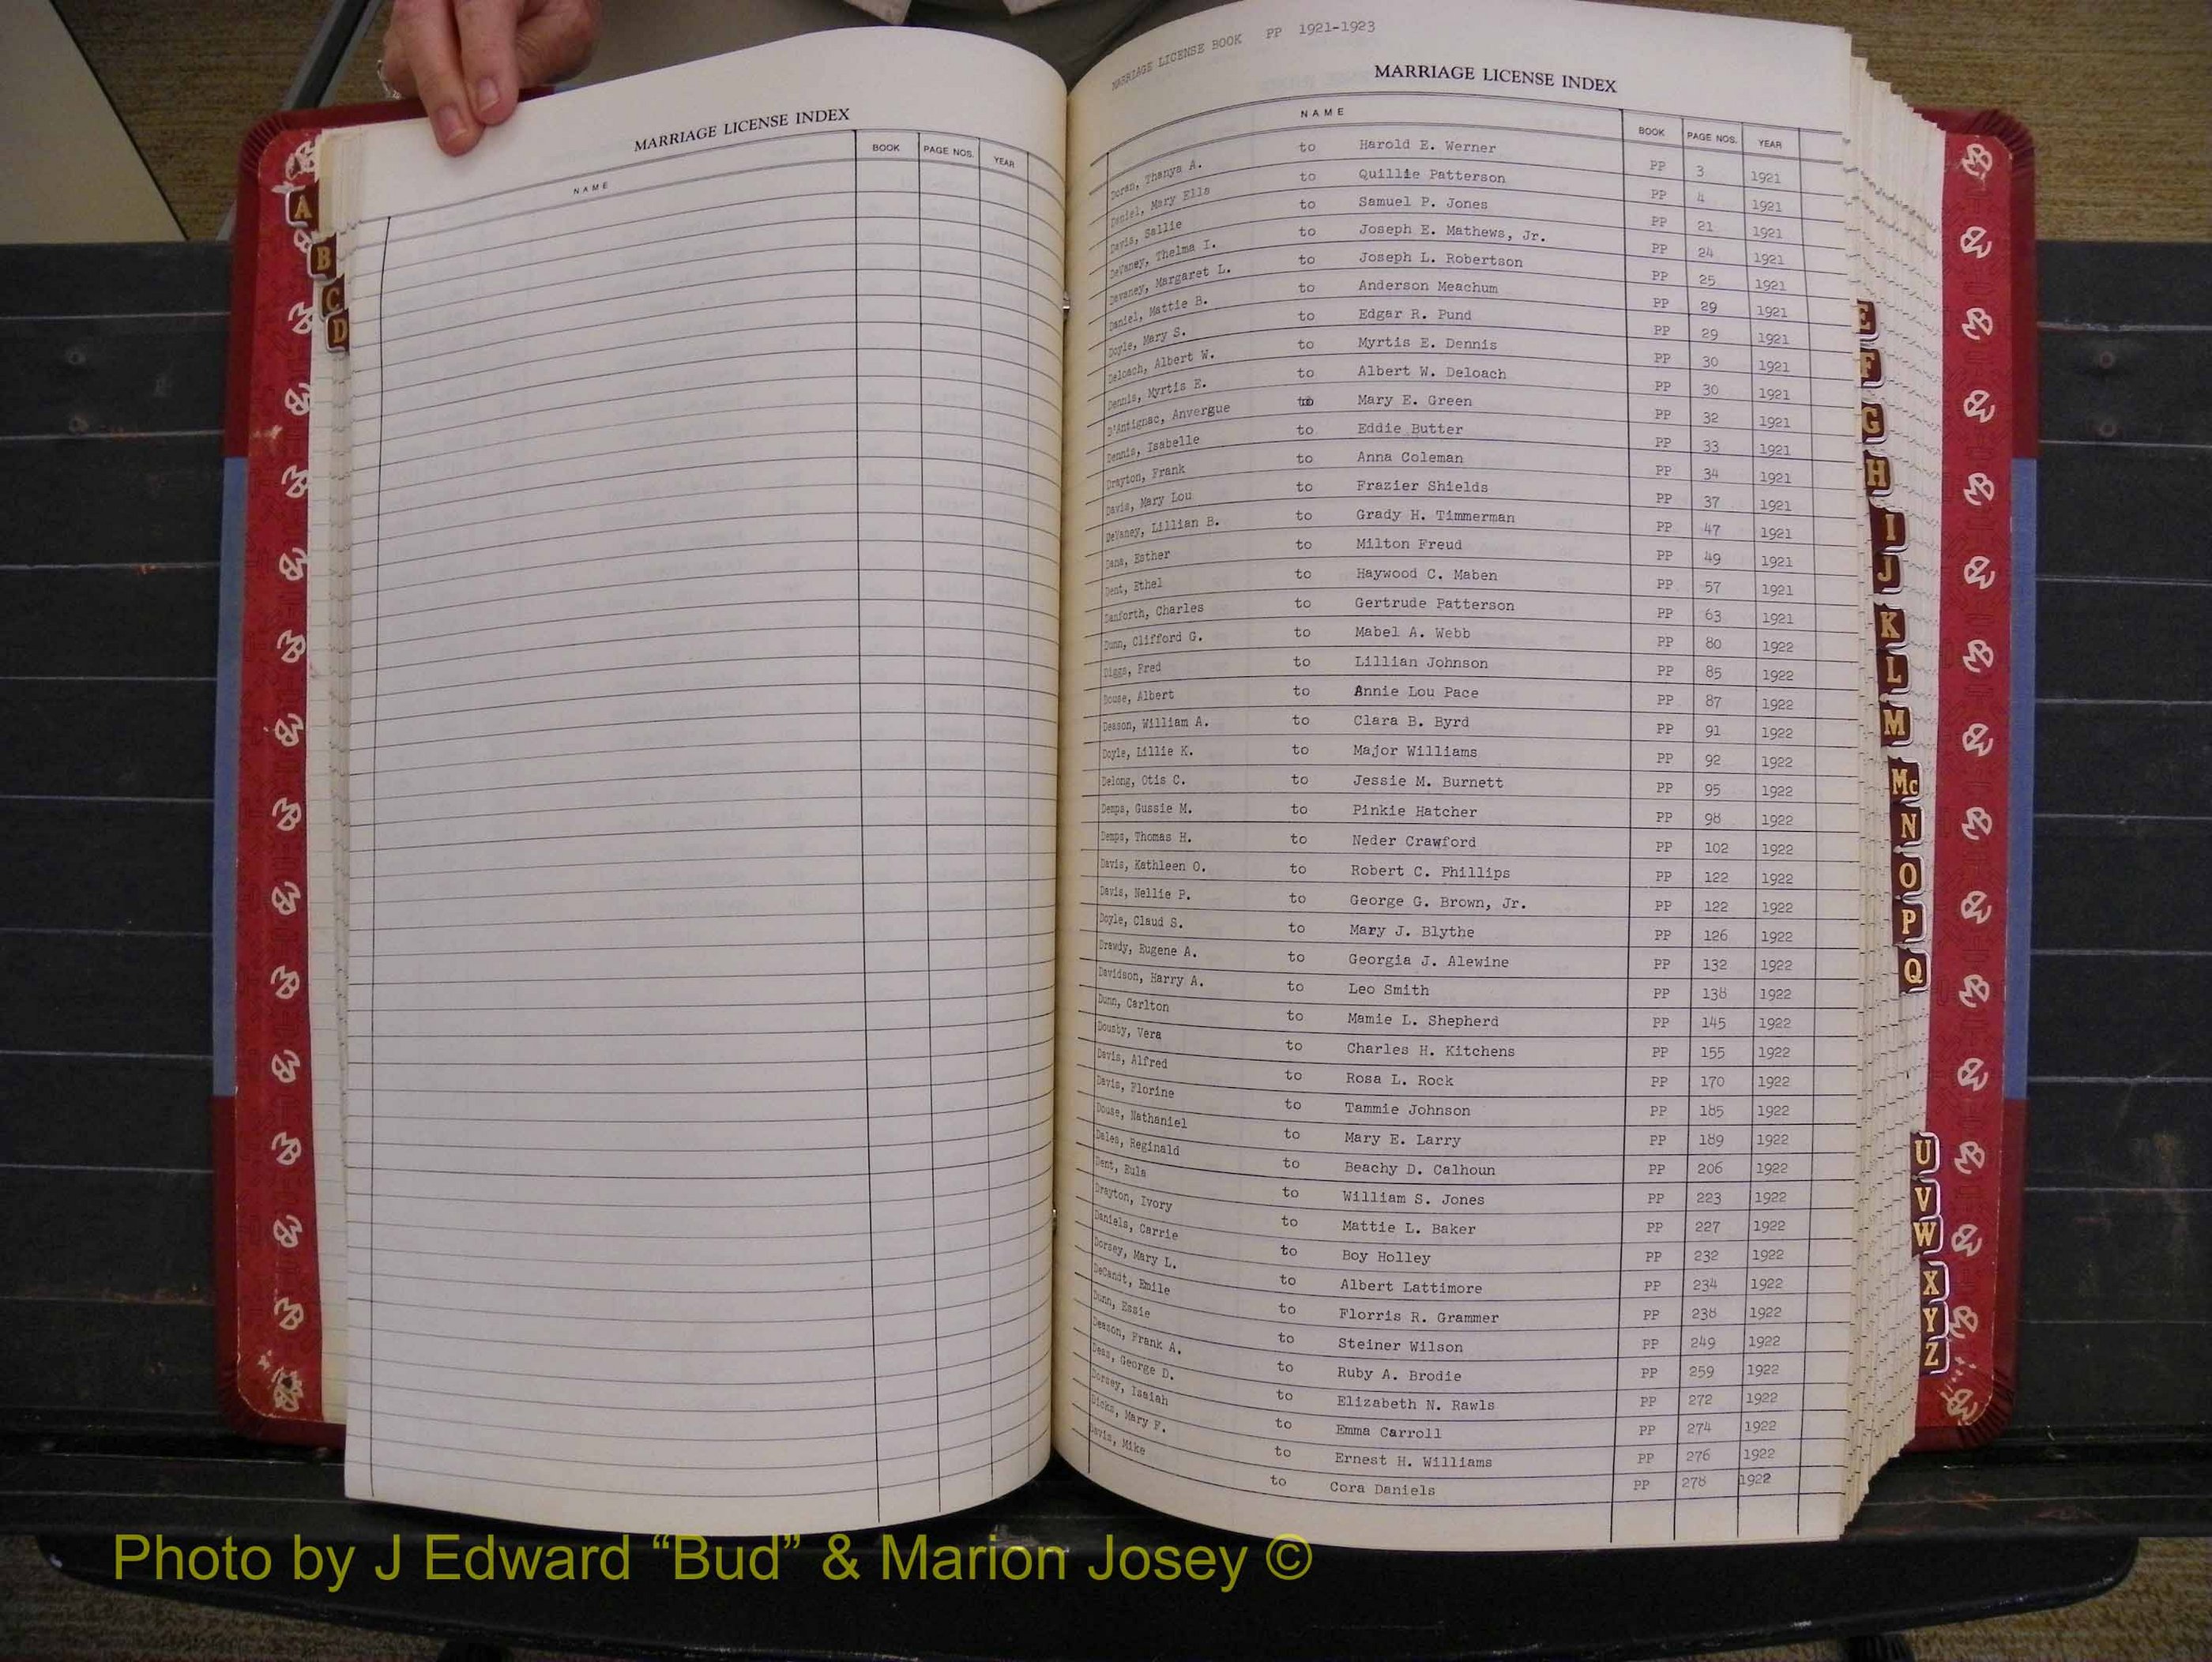 MARRIAGE LICENSE INDEX
NAME BOOK PAGE NOS. YEAR
A
B
C
D
MARRIAGE LICENSE BOOK PP 1921-1923
MARRIAGE LICENSE INDEX
NAME BOOK PAGE NOS. YEAR
Doran, Thanya A. to Harold E. Werner PP 3 1921
Daniel, Mary Ella to Quillie Patterson PP 4 1921
Davis, Sallie to Samuel P. Jones PP 21 1921
DeVaney, Thelma I. to Joseph E. Mathews, Jr. PP 24 1921
Devaney, Margaret L. to Joseph L. Robertson PP 25 1921
Daniel, Mattie B. to Anderson Meachum PP 29 1921
Doyle, Mary S. to Edgar R. Pund PP 29 1921
Deloach, Albert W. to Myrtis E. Dennis PP 30 1921
Dennis, Myrtis E. to Albert W. Deloach PP 30 1921
D'Antignac, Anvergue to Mary E. Green PP 32 1921
Dennis, Isabelle to Eddie Butter PP 33 1921
Drayton, Frank to Anna Coleman PP 34 1921
Davis, Mary Lou to Frazier Shields PP 37 1921
DeVaney, Lillian B. to Grady H. Timmerman PP 47 1921
Dana, Esther to Milton Freud PP 49 1921
Dent, Ethel to Haywood C. Maben PP 57 1921
Danforth, Charles to Gertrude Patterson PP 63 1921
Dunn, Clifford G. to Mabel A. Webb PP 80 1922
Diggs, Fred to Lillian Johnson PP 85 1922
Douse, Albert to Annie Lou Pace PP 87 1922
Deason, William A. to Clara B. Byrd PP 91 1922
Doyle, Lillie K. to Major Williams PP 92 1922
Delong, Otis C. to Jessie M. Burnett PP 95 1922
Demps, Gussie M. to Pinkie Hatcher PP 98 1922
Demps, Thomas H. to Neder Crawford PP 102 1922
Davis, Kathleen O. to Robert C. Phillips PP 122 1922
Davis, Nellie P. to George G. Brown, Jr. PP 122 1922
Doyle, Claud S. to Mary J. Blythe PP 126 1922
Drawdy, Eugene A. to Georgia J. Alewine PP 132 1922
Davidson, Harry A. to Leo Smith PP 138 1922
Dunn, Carlton to Mamie L. Shepherd PP 145 1922
Dousby, Vera to Charles H. Kitchens PP 155 1922
Davis, Alfred to Rosa L. Rock PP 170 1922
Davis, Florine to Tammie Johnson PP 185 1922
Douse, Nathaniel to Mary E. Larry PP 189 1922
Dales, Reginald to Beachy D. Calhoun PP 206 1922
Dent, Eula to William S. Jones PP 223 1922
Drayton, Ivory to Mattie L. Baker PP 227 1922
Daniels, Carrie to Boy Holley PP 232 1922
Dorsey, Mary L. to Albert Lattimore PP 234 1922
DeCandt, Emile to Florris R. Grammer PP 238 1922
Dunn, Essie to Steiner Wilson PP 249 1922
Deason, Frank A. to Ruby A. Brodie PP 259 1922
Dess, George D. to Elizabeth N. Rawls PP 272 1922
Dorsey, Isaiah to Emma Carroll PP 274 1922
Dicks, Mary F. to Ernest H. Williams PP 276 1922
Davis, Mike to Cora Daniels PP 278 1922
E
F
G
H
I
J
K
L
M
Mc
N
O
P
Q
U
V
W
X
Y
Z
Photo by J Edward “Bud” & Marion Josey ©